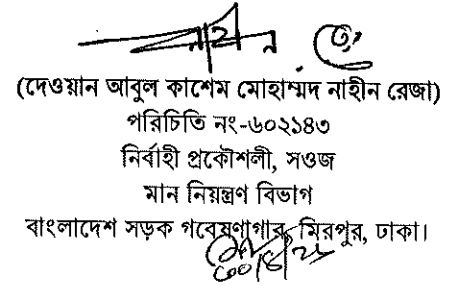 (দেওয়ান আবুল কাশেম মোহাম্মদ নাহীন রেজা)
পরিচিতি নং-৬০২১৪৩
নির্বাহী প্রকৌশলী, সওজ
মান নিয়ন্ত্রণ বিভাগ
বাংলাদেশ সড়ক গবেষণাগার, মিরপুর, ঢাকা।